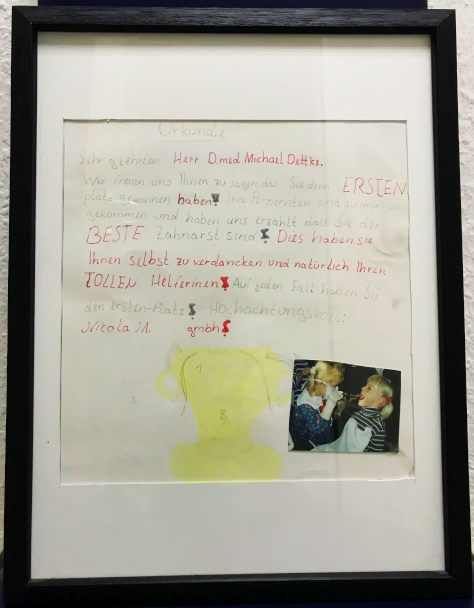 Urkunde
Sehr geehrten Herr D.med Michael Oettke.
Wir freuen uns Ihnen zu sagen, das Sie denn ERSTEN
platz gewonnen haben! Ihre Perzienten sind zu mir
gekommen und haben uns erzählt dass Sie der
BESTE Zahnarst sind! Dies haben sie
Ihnen selbst zu verdancken und natürlich Ihren
TOLLEN Helferinen! Auf jeden Fall haben Sie
den ersten-Platz! Hochachtungsvoll:
Nicola M. gmbh!
1.